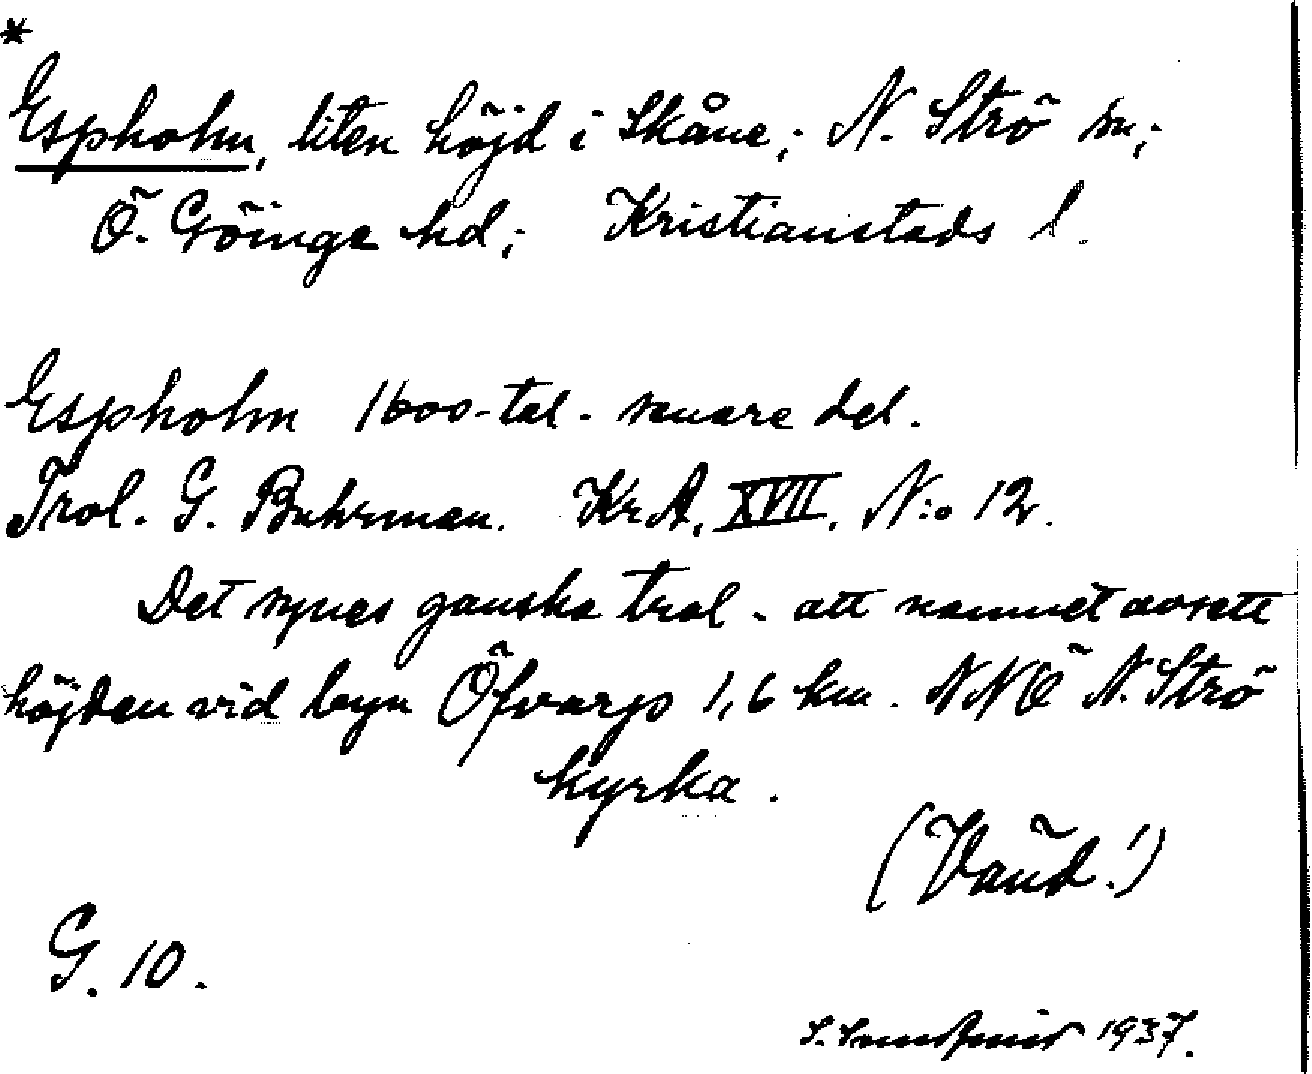 *
Espholm, liten höjd i Skåne; N. Strö sn;
Ö. Göinge hd; Kristianstads l.
Espholm 1600-tal - senare del.
Trol. G. Buhrman. KrA. XVII. N:o 12.
Det synes ganska trol. att namnet avsett
höjden vid byn Öfvarp 1,6 km. NNÖ N. Strö
kyrka.
(Vänd!)
G. 10.
1937.